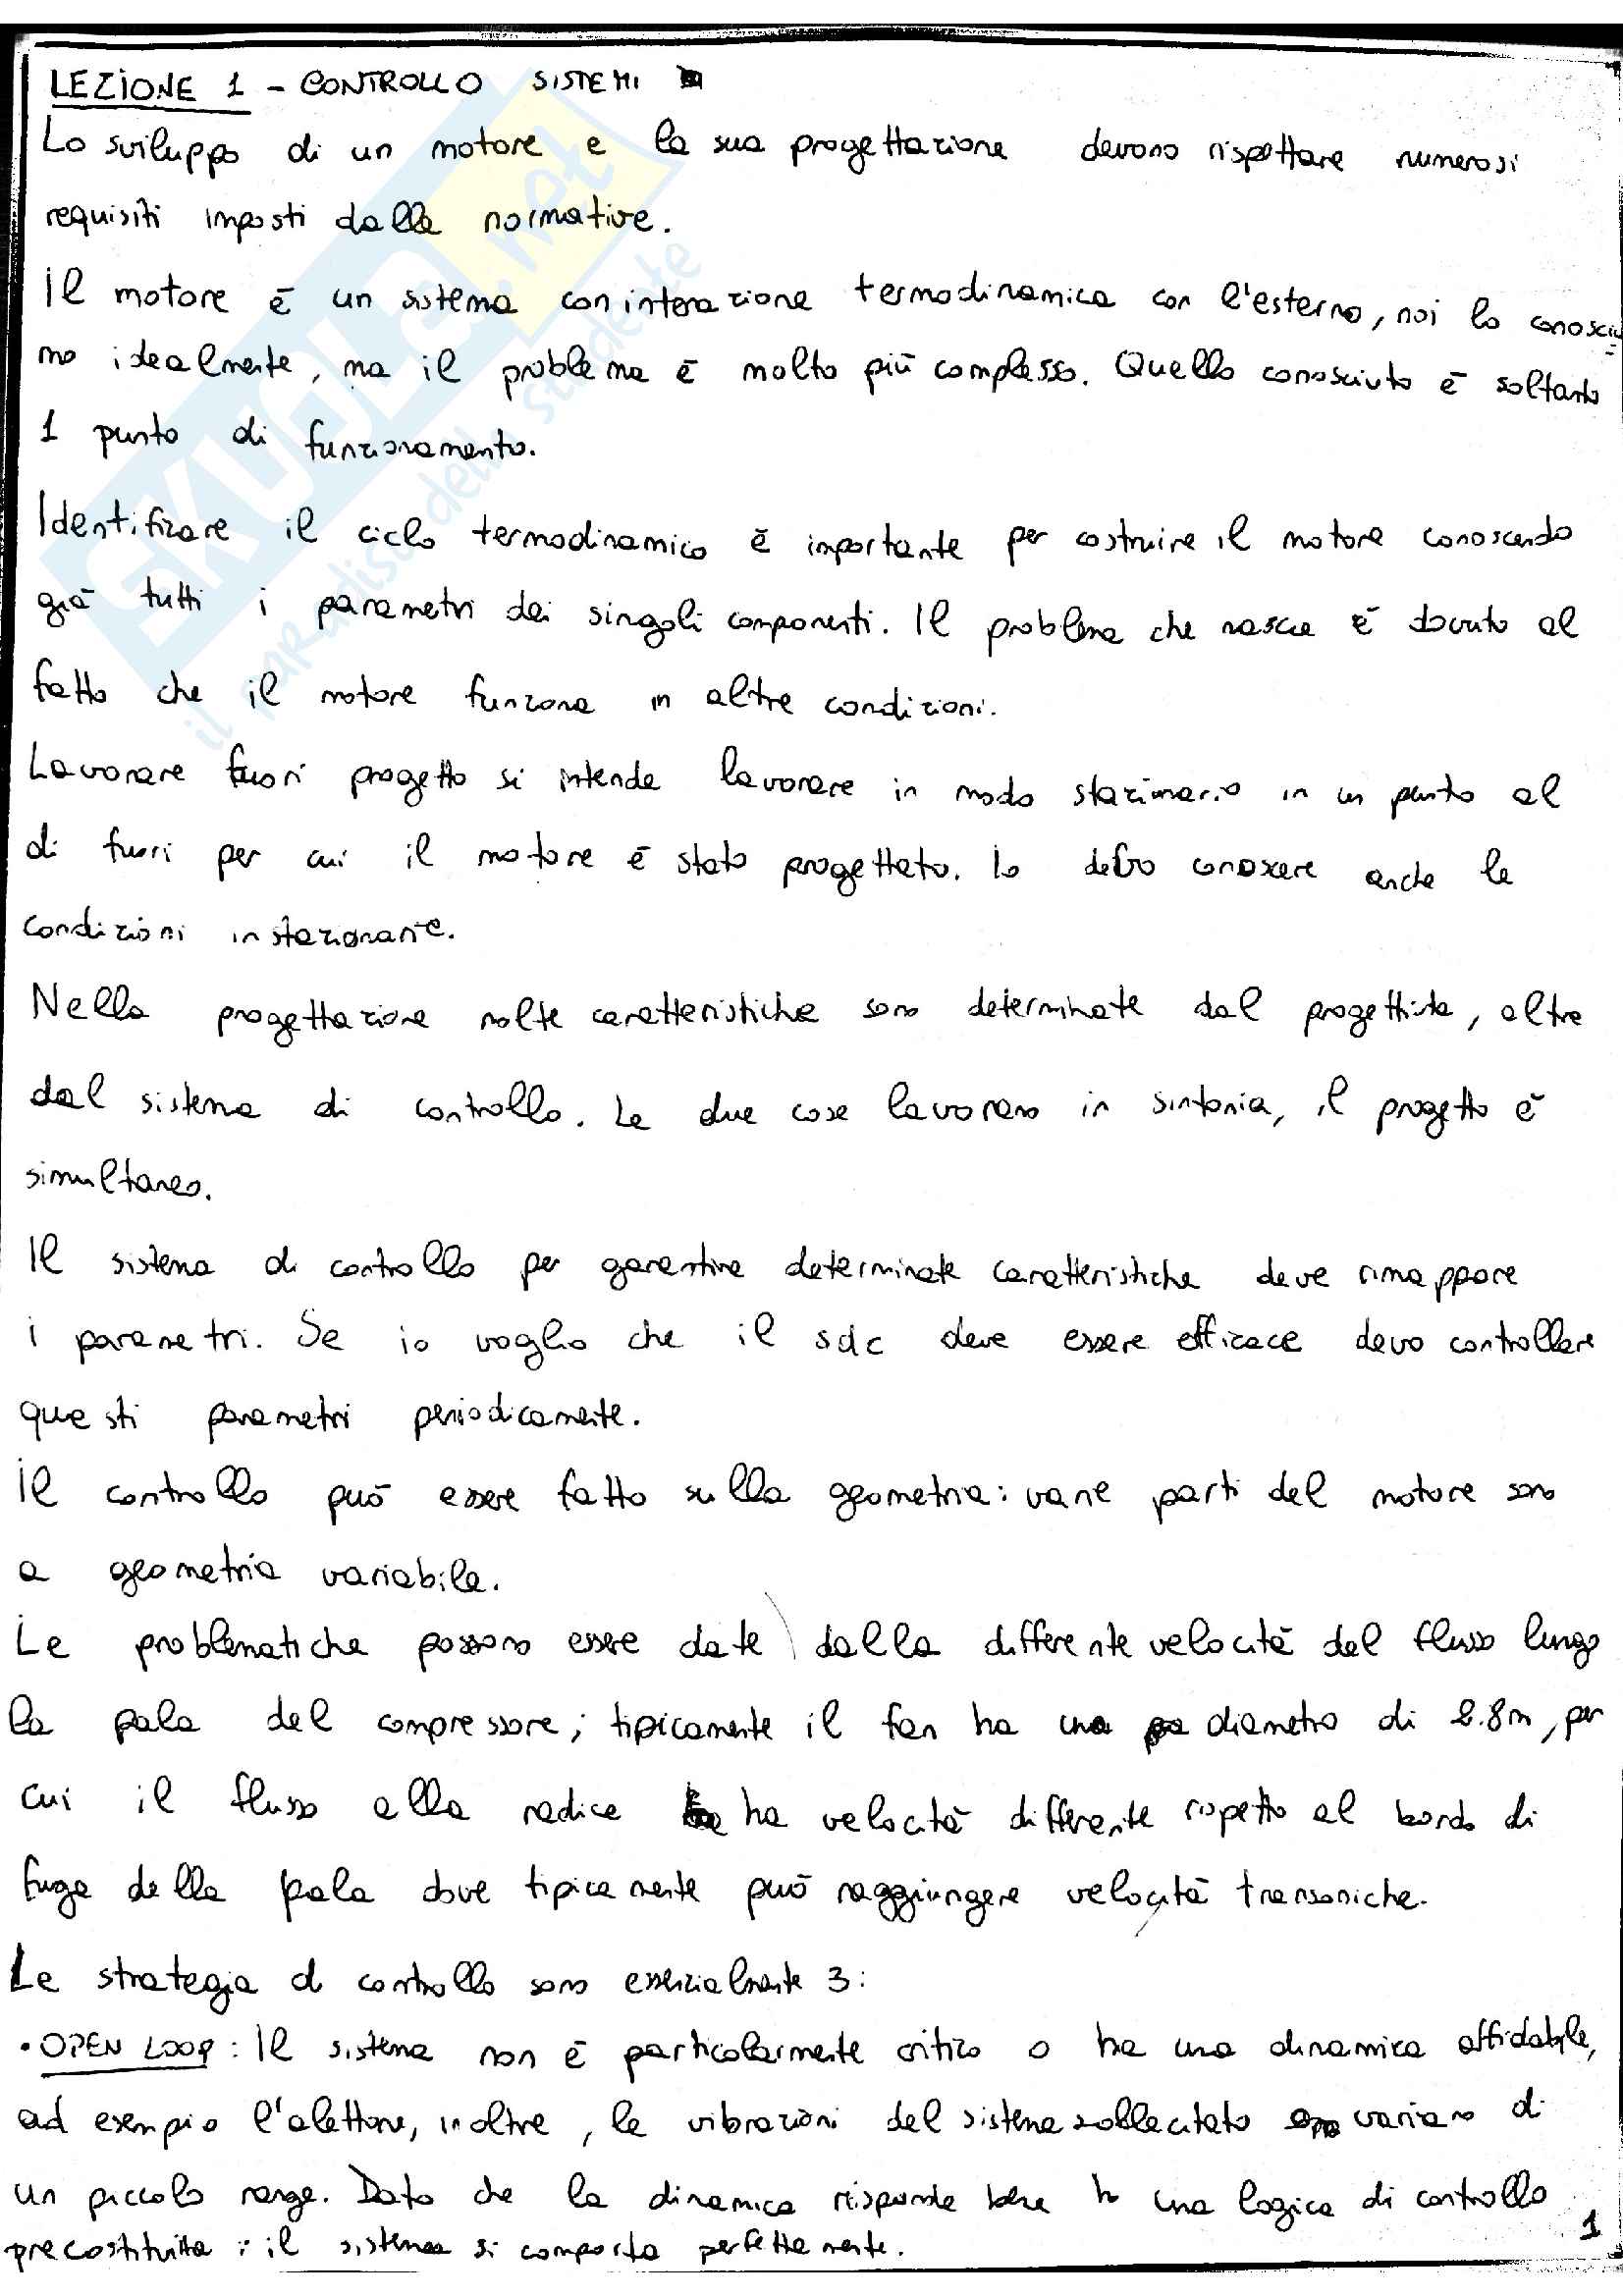 LEZIONE 1 - CONTROLLO SISTEMI
Lo sviluppo di un motore e la sua progettazione devono rispettare numerosi
requisiti imposti dalle normative.
Il motore è un sistema con interazione termodinamica con l'esterno, noi lo conoscia
mo idealmente, ma il problema è molto più complesso. Quello conosciuto è soltanto
1 punto di funzionamento.
Identificare il ciclo termodinamico è importante per costruire il motore conoscendo
già tutti i parametri dei singoli componenti. Il problema che nasce è dovuto al
fatto che il motore funziona in altre condizioni.
Lavorare fuori progetto si intende lavorare in modo stazionario in un punto al
di fuori per cui il motore è stato progettato. Io devo conoscere anche le
condizioni instazionarie.
Nella progettazione molte caratteristiche sono determinate dal progettista, altre
dal sistema di controllo. Le due cose lavorano in sintonia, il progetto è
simultaneo.
Il sistema di controllo per garantire determinate caratteristiche deve rimappare
i parametri. Se io voglio che il sdc deve essere efficace devo controllare
questi parametri periodicamente.
Il controllo può essere fatto sulla geometria: varie parti del motore sono
a geometria variabile.
Le problematiche possono essere date dalla differente velocità del flusso lungo
la pala del compressore; tipicamente il fan ha una diametro di 2.8m, per
cui il flusso alla radice ha velocità differente rispetto al bordo di
fuga della pala dove tipicamente può raggiungere velocità transoniche.
Le strategia di controllo sono essenzialmente 3:
• OPEN LOOP: Il sistema non è particolarmente critico o ha una dinamica affidabile,
ad esempio l'alettone, inoltre, le vibrazioni del sistema sollecitato variano di
un piccolo range. Dato che la dinamica risponde bene ho una logica di controllo
precostituita: il sistema si comporta perfettamente.
1
SKUOLA.net
il paradiso dello studente